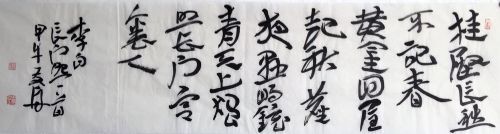 桂殿長愁
不記春
黄金四屋
起秋塵
夜懸明鏡
青天上獨
照長門宫
裏人
李白
長門怨一首
甲午夏月